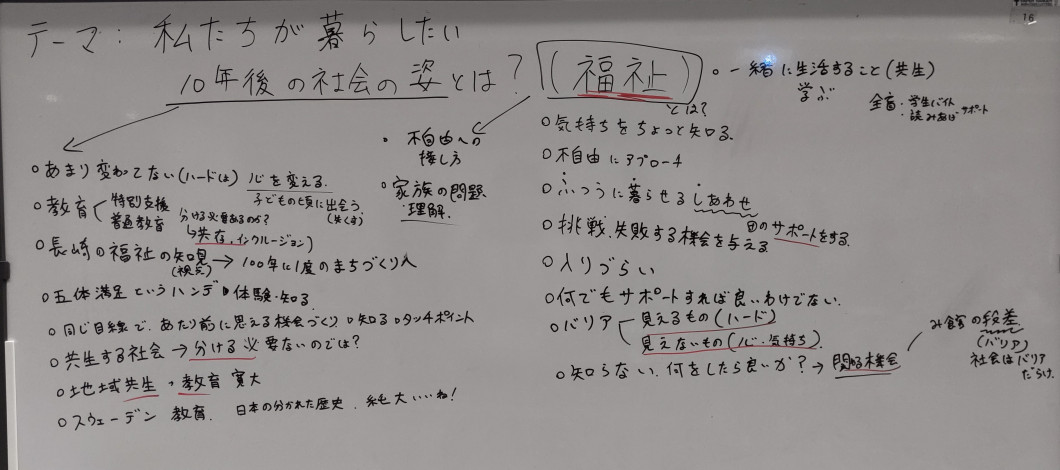 16
テーマ: 私たちが暮らしたい
10年後の社会の姿とは?
(福祉)
とは?
○あまり変わってない(ハードは) 心を変える。
子どもの頃に出会う
○教育 特別支援
普通教育
分ける必要あるのか?
↳共存、インクルージョン)
○長崎の福祉の知見 → 100年に1度のまちづくり
(視点)
○五体満足というハンデ 体験・知る
○同じ目線で、あたり前に思える機会づくり ○知る ○タッチポイント
○共生する社会 → 分ける必要ないのでは?
○地域共生・教育
○スウェーデン 教育. 日本の分かれた歴史. いいね!
・不自由への
接し方
○家族の問題
・理解.
○一緒に生活すること(共生)
学ぶ
・学生バイト
サポート
○気持ちをちょっと知る.
○不自由にアプローチ
○ふつうに暮らせるしあわせ
○挑戦、失敗する機会を与える
のサポートをする.
○入りづらい
○何でもサポートすれば良いわけでない.
○バリア 見えるもの(ハード)
見えないもの(心・気持ち).
○知らない、何をしたら良いか? → 関わる機会
の段差
(バリア)
社会はバリア
だらけ.